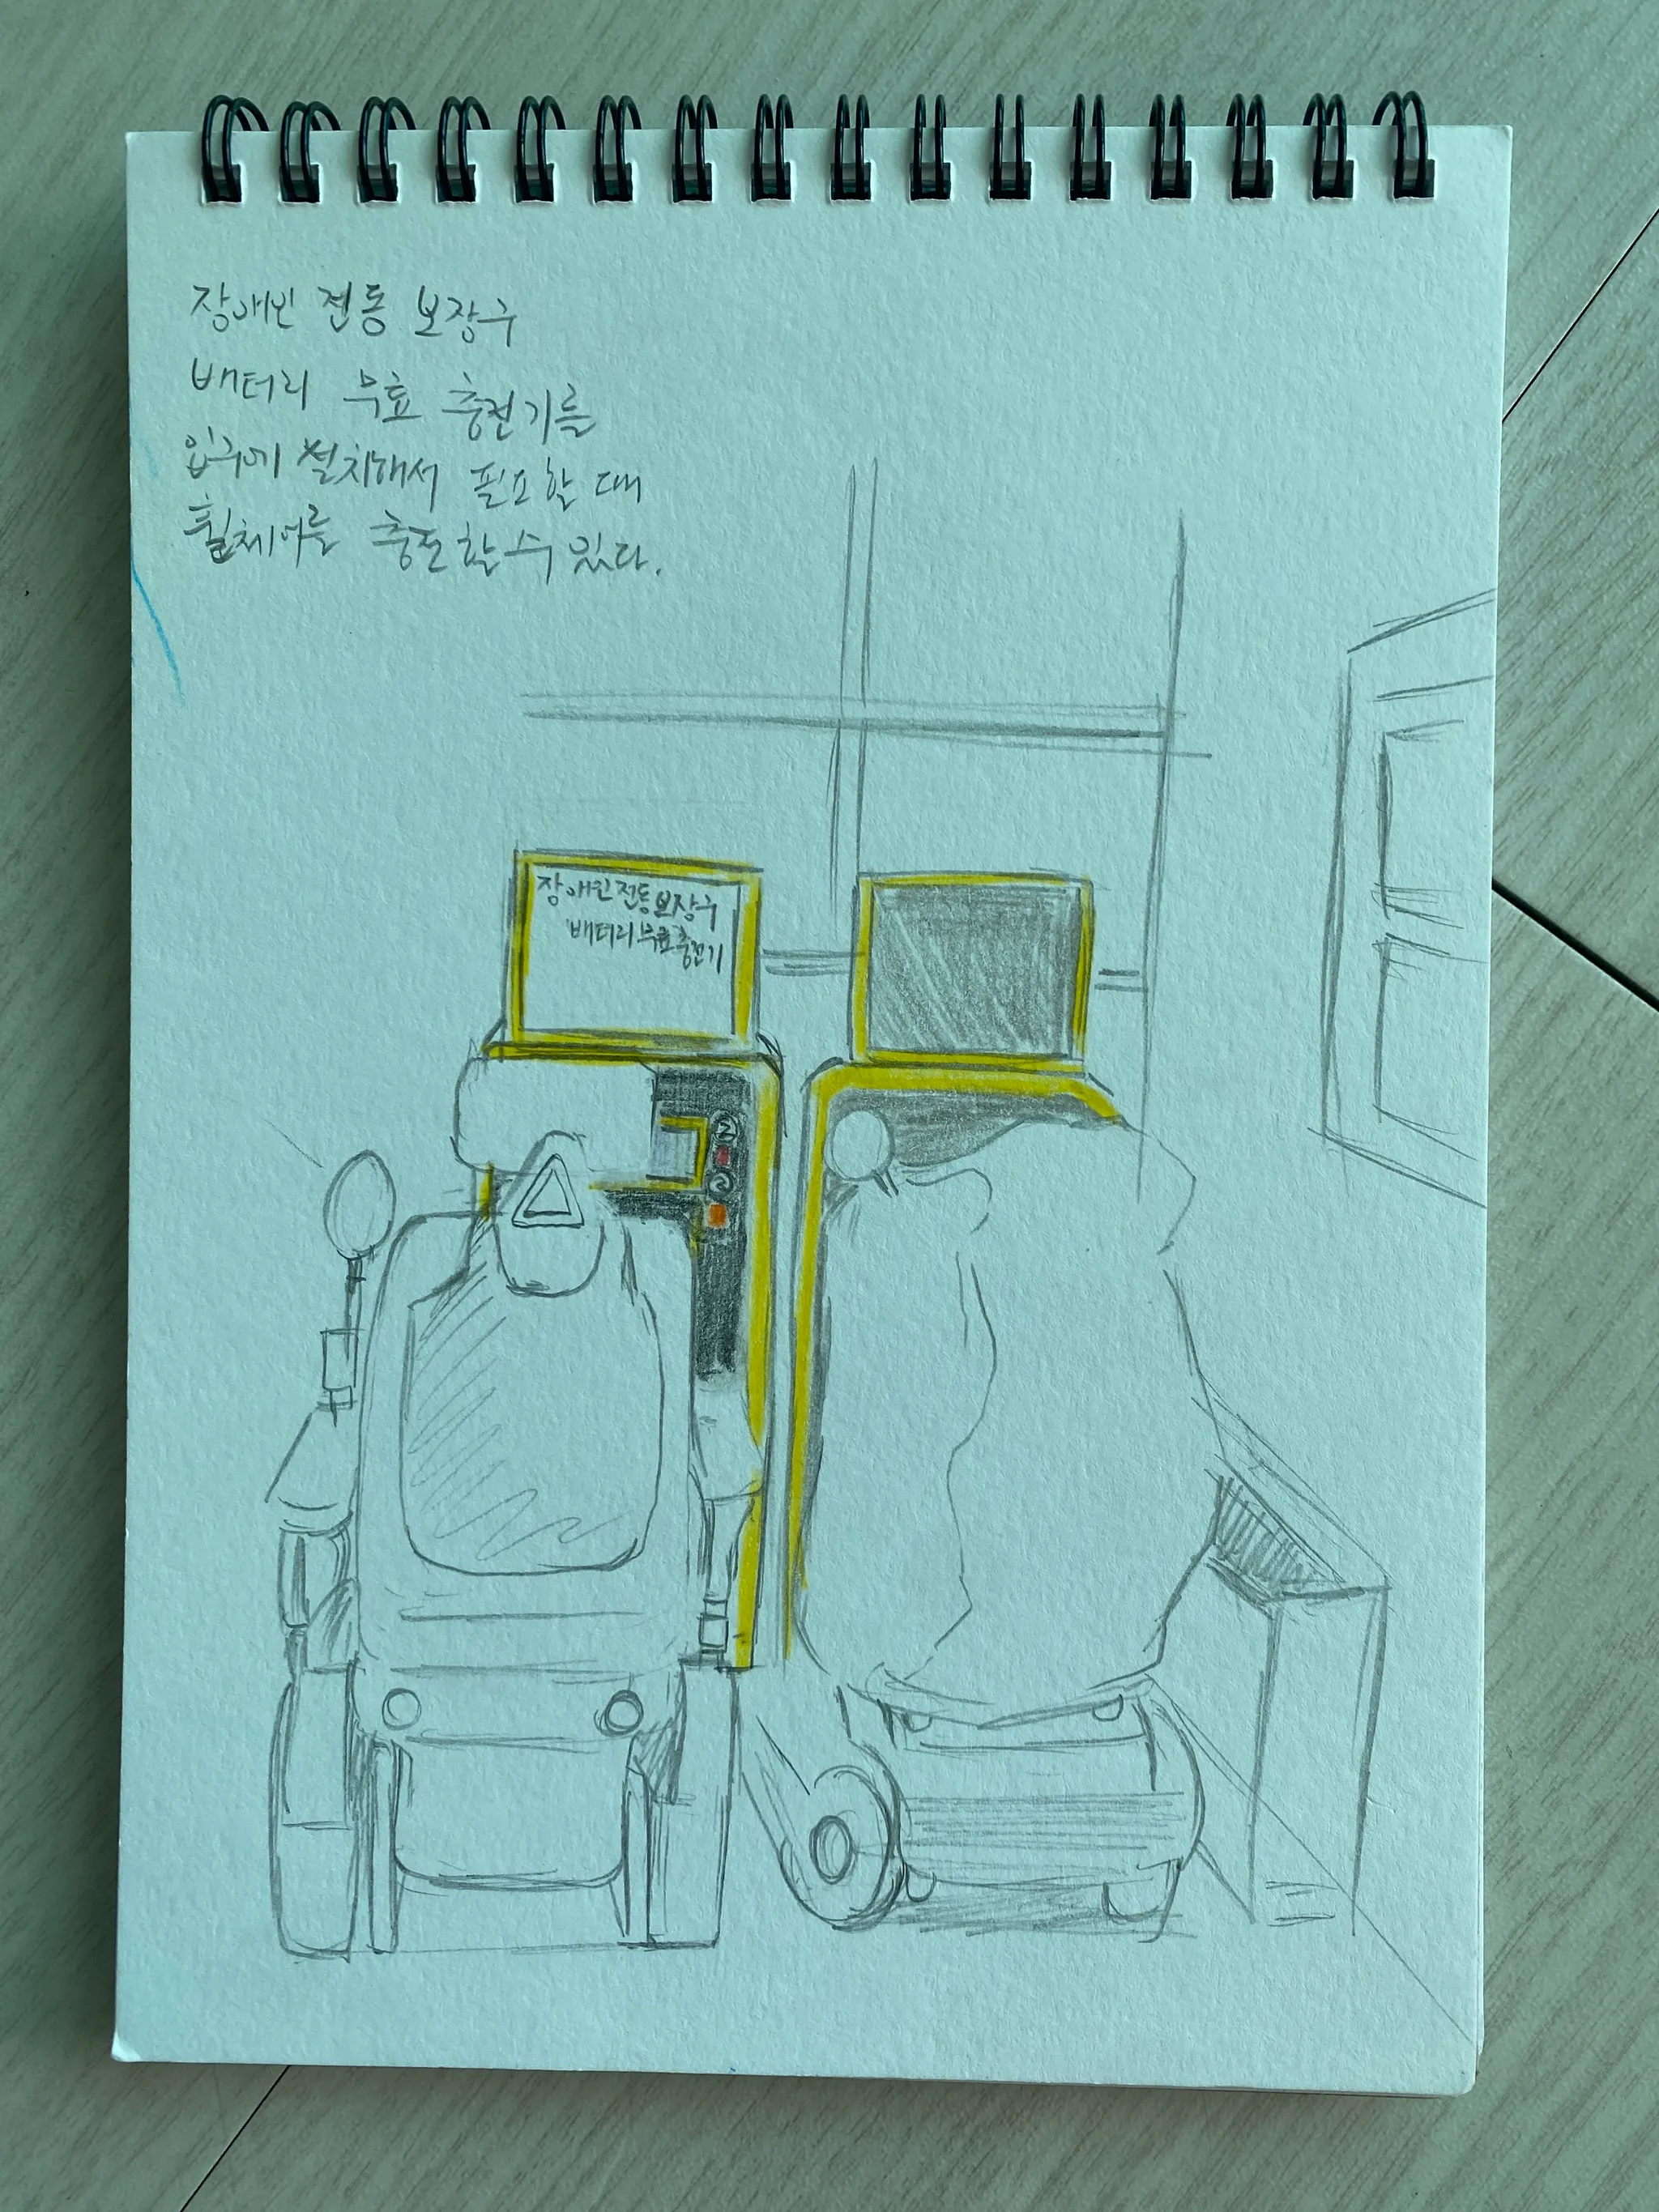 장애인 전동 보장구
배터리 무료 충전기를
입구에 설치해서 필요할 때
휠체어를 충전할 수 있다.
장애인 전동 보장구
배터리 무료 충전기
2
2